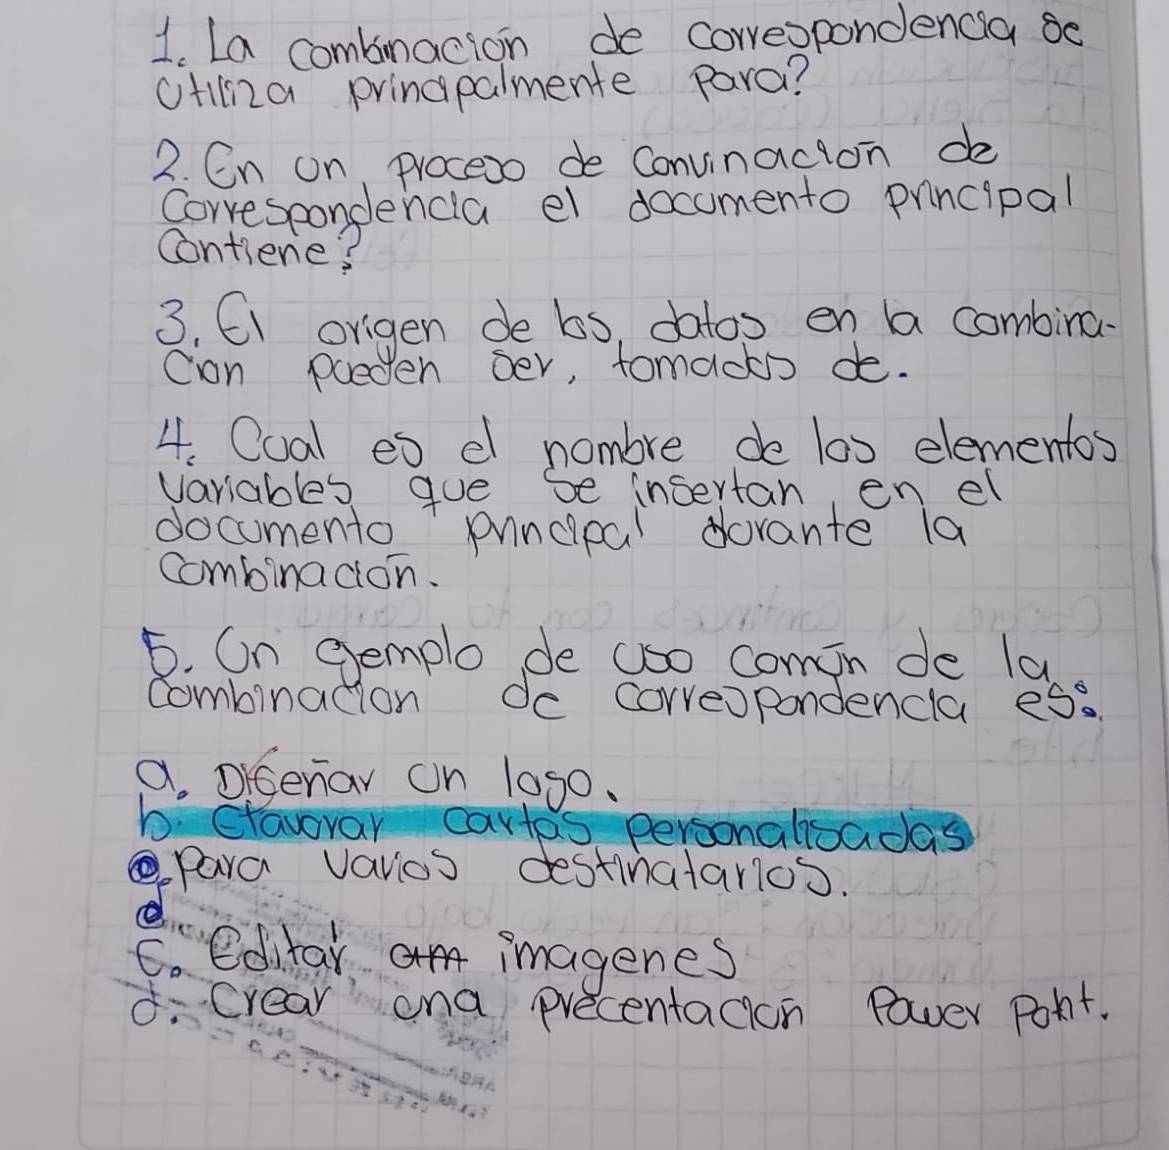 1. La combinación de correspondencia se
utiliza principalmente para?
2. En un proceso de convinación de
correspondencia el documento principal
contiene?
3. El origen de los datos en la combina-
cion pueden ser, tomados de.
4. Cual es el nombre de los elementos
variables que se insertan en el
documento principal durante la
combinación.
5. Un ejemplo de uso común de la
combinación de correspondencia es:
a. Diseñar un logo.
b. cartas personalisadas
para varios destinatarios.
c. Editar imagenes
d. Crear una precentación Pawer Point.